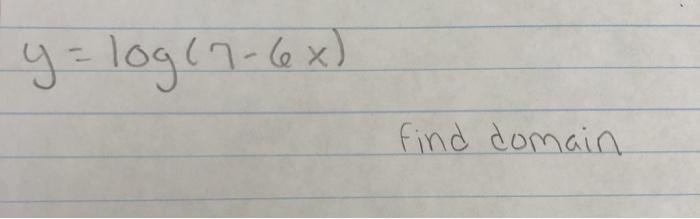 y = log(7-6x)
find domain